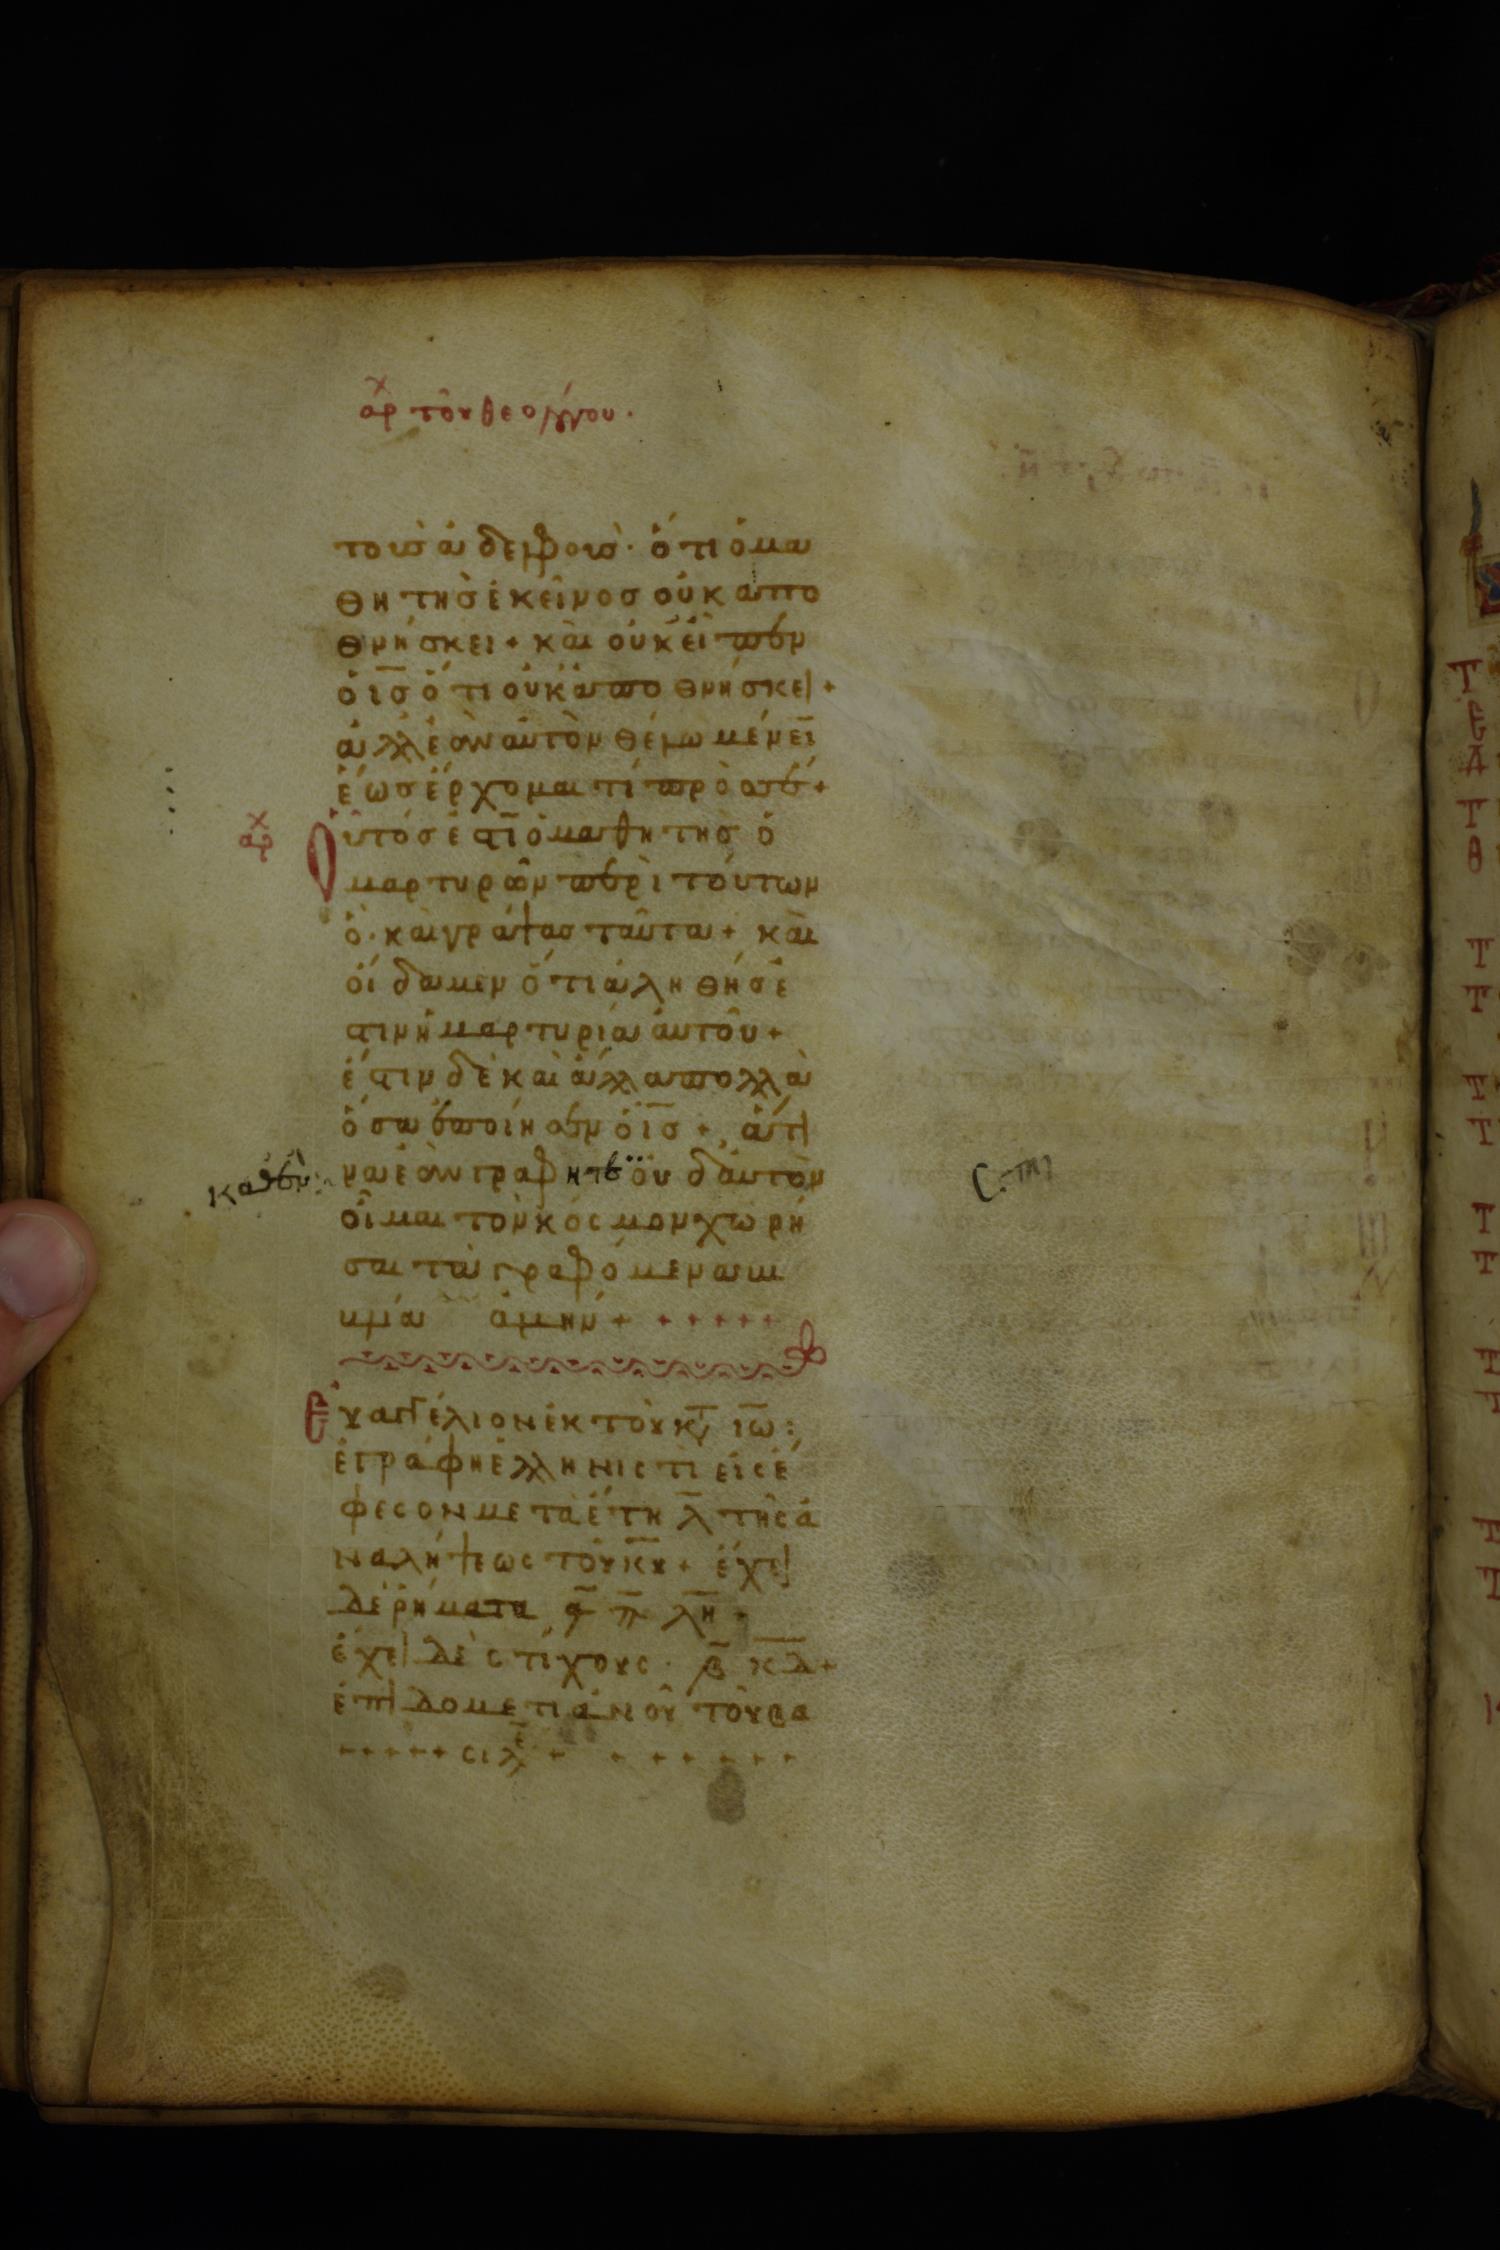 αρχ τοῦ θεολόγου·
τοὺσ ἀδελφοὺσ· ὅτι ὁ μα
θητὴσ ἐκεῖνοσ οὐκ ἀπο
θνήσκει + καὶ οὐκ εἶπεν
ὁ ι̅σ̅ ὅτι οὐκ ἀποθνήσκει +
ἀλλ ἐὰν αὐτὸν θέλω μένειν
ἕωσ ἔρχομαι τί πρὸσ σέ +
αρχ
Οὗτόσ ἐστιν ὁ μαθητὴσ ὁ
μαρτυρῶν περὶ τούτων
ὁ· καὶ γράψασ ταῦτα + καὶ
οἴδαμεν ὅτι ἀληθήσ ἐ
στιν ἡ μαρτυρία αὐτοῦ +
ἔστιν δὲ καὶ ἄλλα πολλὰ
ὅσα ἐποίησεν ὁ ι̅σ̅ + ἅτι
καθἐν
να ἐὰν γραφητε οὐδ αὐτὸν
οἶμαι τὸν κόσμον χωρῆ
σαι τὰ γραφόμενα βι
βλία ἀμήν + + + + + +
Εὐαγγέλιον ἐκ τοῦ κ̅ τ̅ ιω̅ :
ἐγράφη ἑλληνιστὶ εἰς ἔ
φεσον μετὰ ἔτη λ̅ τῆς ἀ
ναλήψεως τοῦ κ̅υ̅ + ἔχει
δὲ ῥήματα ͵α̅ π̅ λ̅η̅ +
ἔχει δὲ στίχους · ͵β̅ κ̅δ̅ +
ἐπὶ δομετιάνοῦ τοῦ βα
+ + + + + σιλε + + + + + + +